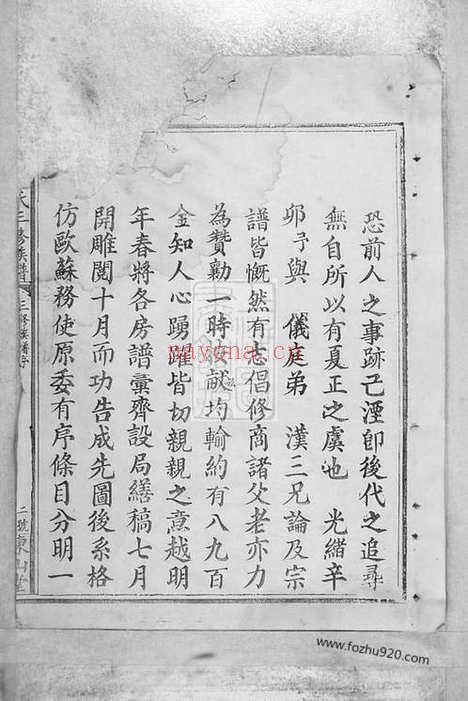 恐前人之事跡已湮卽後代之追尋
無自所以有夏正之虞也 光緒辛
卯予與 儀庭弟 漢三兄論及宗
譜皆慨然有志倡修商諸父老亦力
為贊勷一時按畝均輸約有八九百
金知人心踴躍皆切親親之意越明
年春將各房譜彙齊設局繕稿七月
開雕閱十月而功告成先圖後系格
仿歐蘇務使原委有序條目分明一
氏三修族譜
三修族譜序
nayona.cn
www.fozhu920.com